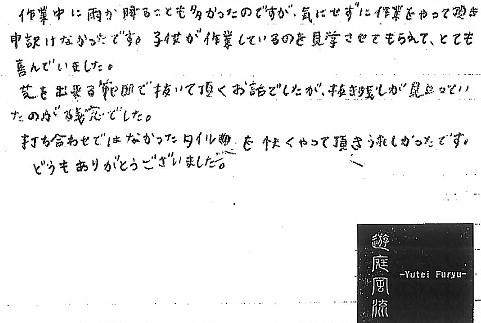 作業中に雨が降ることも多かったのですが、気にせずに作業をやって頂き
申訳けなかったです。子供が作業しているのを見学させてもらえて、とても
喜んでいました。
花を出来る範囲で抜いて頂くお話でしたが、抜き残しが目立ってい
たのが残念でした。
打ち合わせではなかったタイル を快くやって頂きうれしかったです。
どうもありがとうございました。
遊庭風流
-Yutei Furyu-